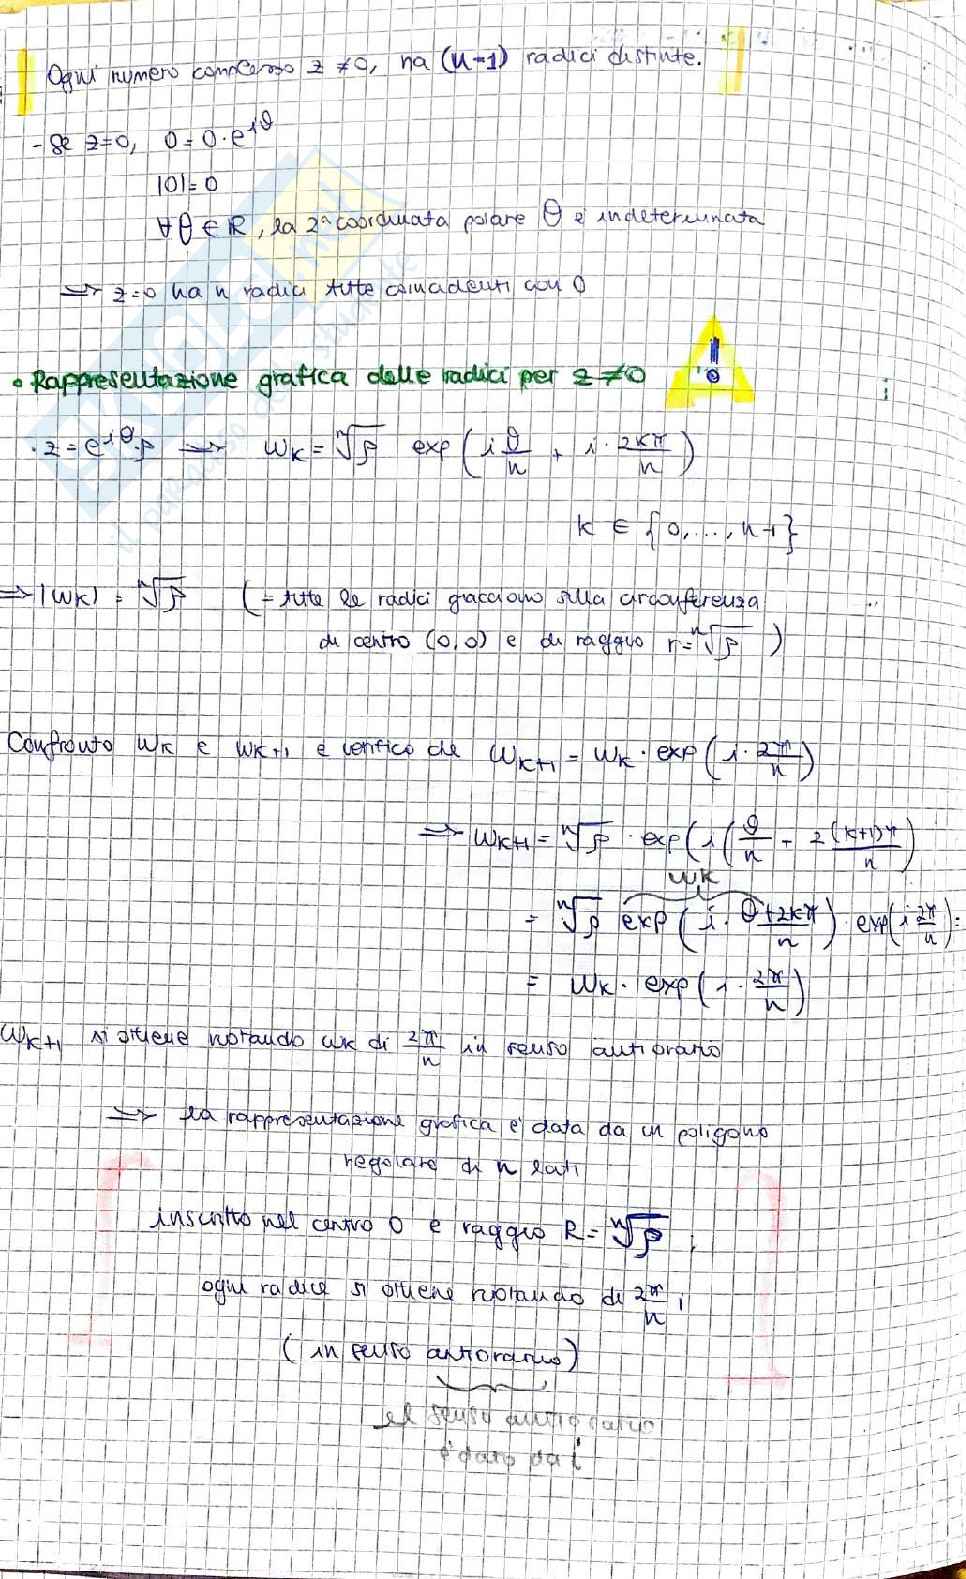 Ogni numero complesso z ≠ 0, ha (n-1) radici distinte.
- Se z=0, 0 = 0 · e^{iθ}
|0| = 0
∀θ ∈ R, la 2ª coordinata polare θ è indeterminata
⇒ z=0 ha n radici tutte coincidenti con 0
• Rappresentazione grafica delle radici per z ≠ 0 !
· z = e^{iθ}·ρ ⇒ w_k = ⁿ√ρ exp(i θ/n + i · 2kπ/n)
k ∈ {0,..., n-1}
⇒ |w_k| = ⁿ√ρ (= tutte le radici giacciono sulla circonferenza
di centro (0,0) e di raggio r = ⁿ√ρ )
Confronto w_k e w_{k+1} e verifico che w_{k+1} = w_k · exp(i · 2π/n)
⇒ w_{k+1} = ⁿ√ρ · exp(i(θ/n + 2(k+1)π/n)
w_k
= ⁿ√ρ exp(i · θ+2kπ/n) · exp(i 2π/n) =
= w_k · exp(i · 2π/n)
w_{k+1} si ottiene ruotando w_k di 2π/n in senso antiorario
⇒ la rappresentazione grafica è data da un poligono
regolare di n lati
inscritto nel centro 0 e raggio R = ⁿ√ρ ;
ogni radice si ottiene ruotando di 2π/n ,
(in senso antiorario)
il senso antiorario
è dato da i